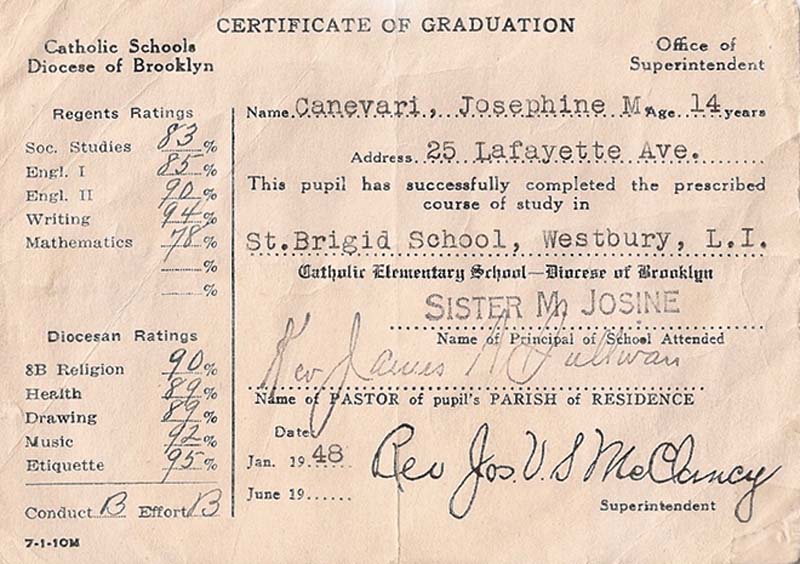 CERTIFICATE OF GRADUATION
Catholic Schools
Diocese of Brooklyn
Office of
Superintendent
Regents Ratings
Soc. Studies 83 %
Engl. I 85 %
Engl. II 90 %
Writing 94 %
Mathematics 78 %
%
%
Diocesan Ratings
8B Religion 90 %
Health 89 %
Drawing 89 %
Music 92 %
Etiquette 95 %
Conduct B Effort B
7-1-10M
Name Canevari, Josephine M. Age 14 years
Address 25 Lafayette Ave.
This pupil has successfully completed the prescribed
course of study in
St.Brigid School, Westbury, L.I.
Catholic Elementary School—Diocese of Brooklyn
SISTER M. JOSINE
Name of Principal of School Attended
Rev James Sullivan
Name of PASTOR of pupil's PARISH of RESIDENCE
Date
Jan. 1948
June 19
Rev Jos. V. S McClancy
Superintendent